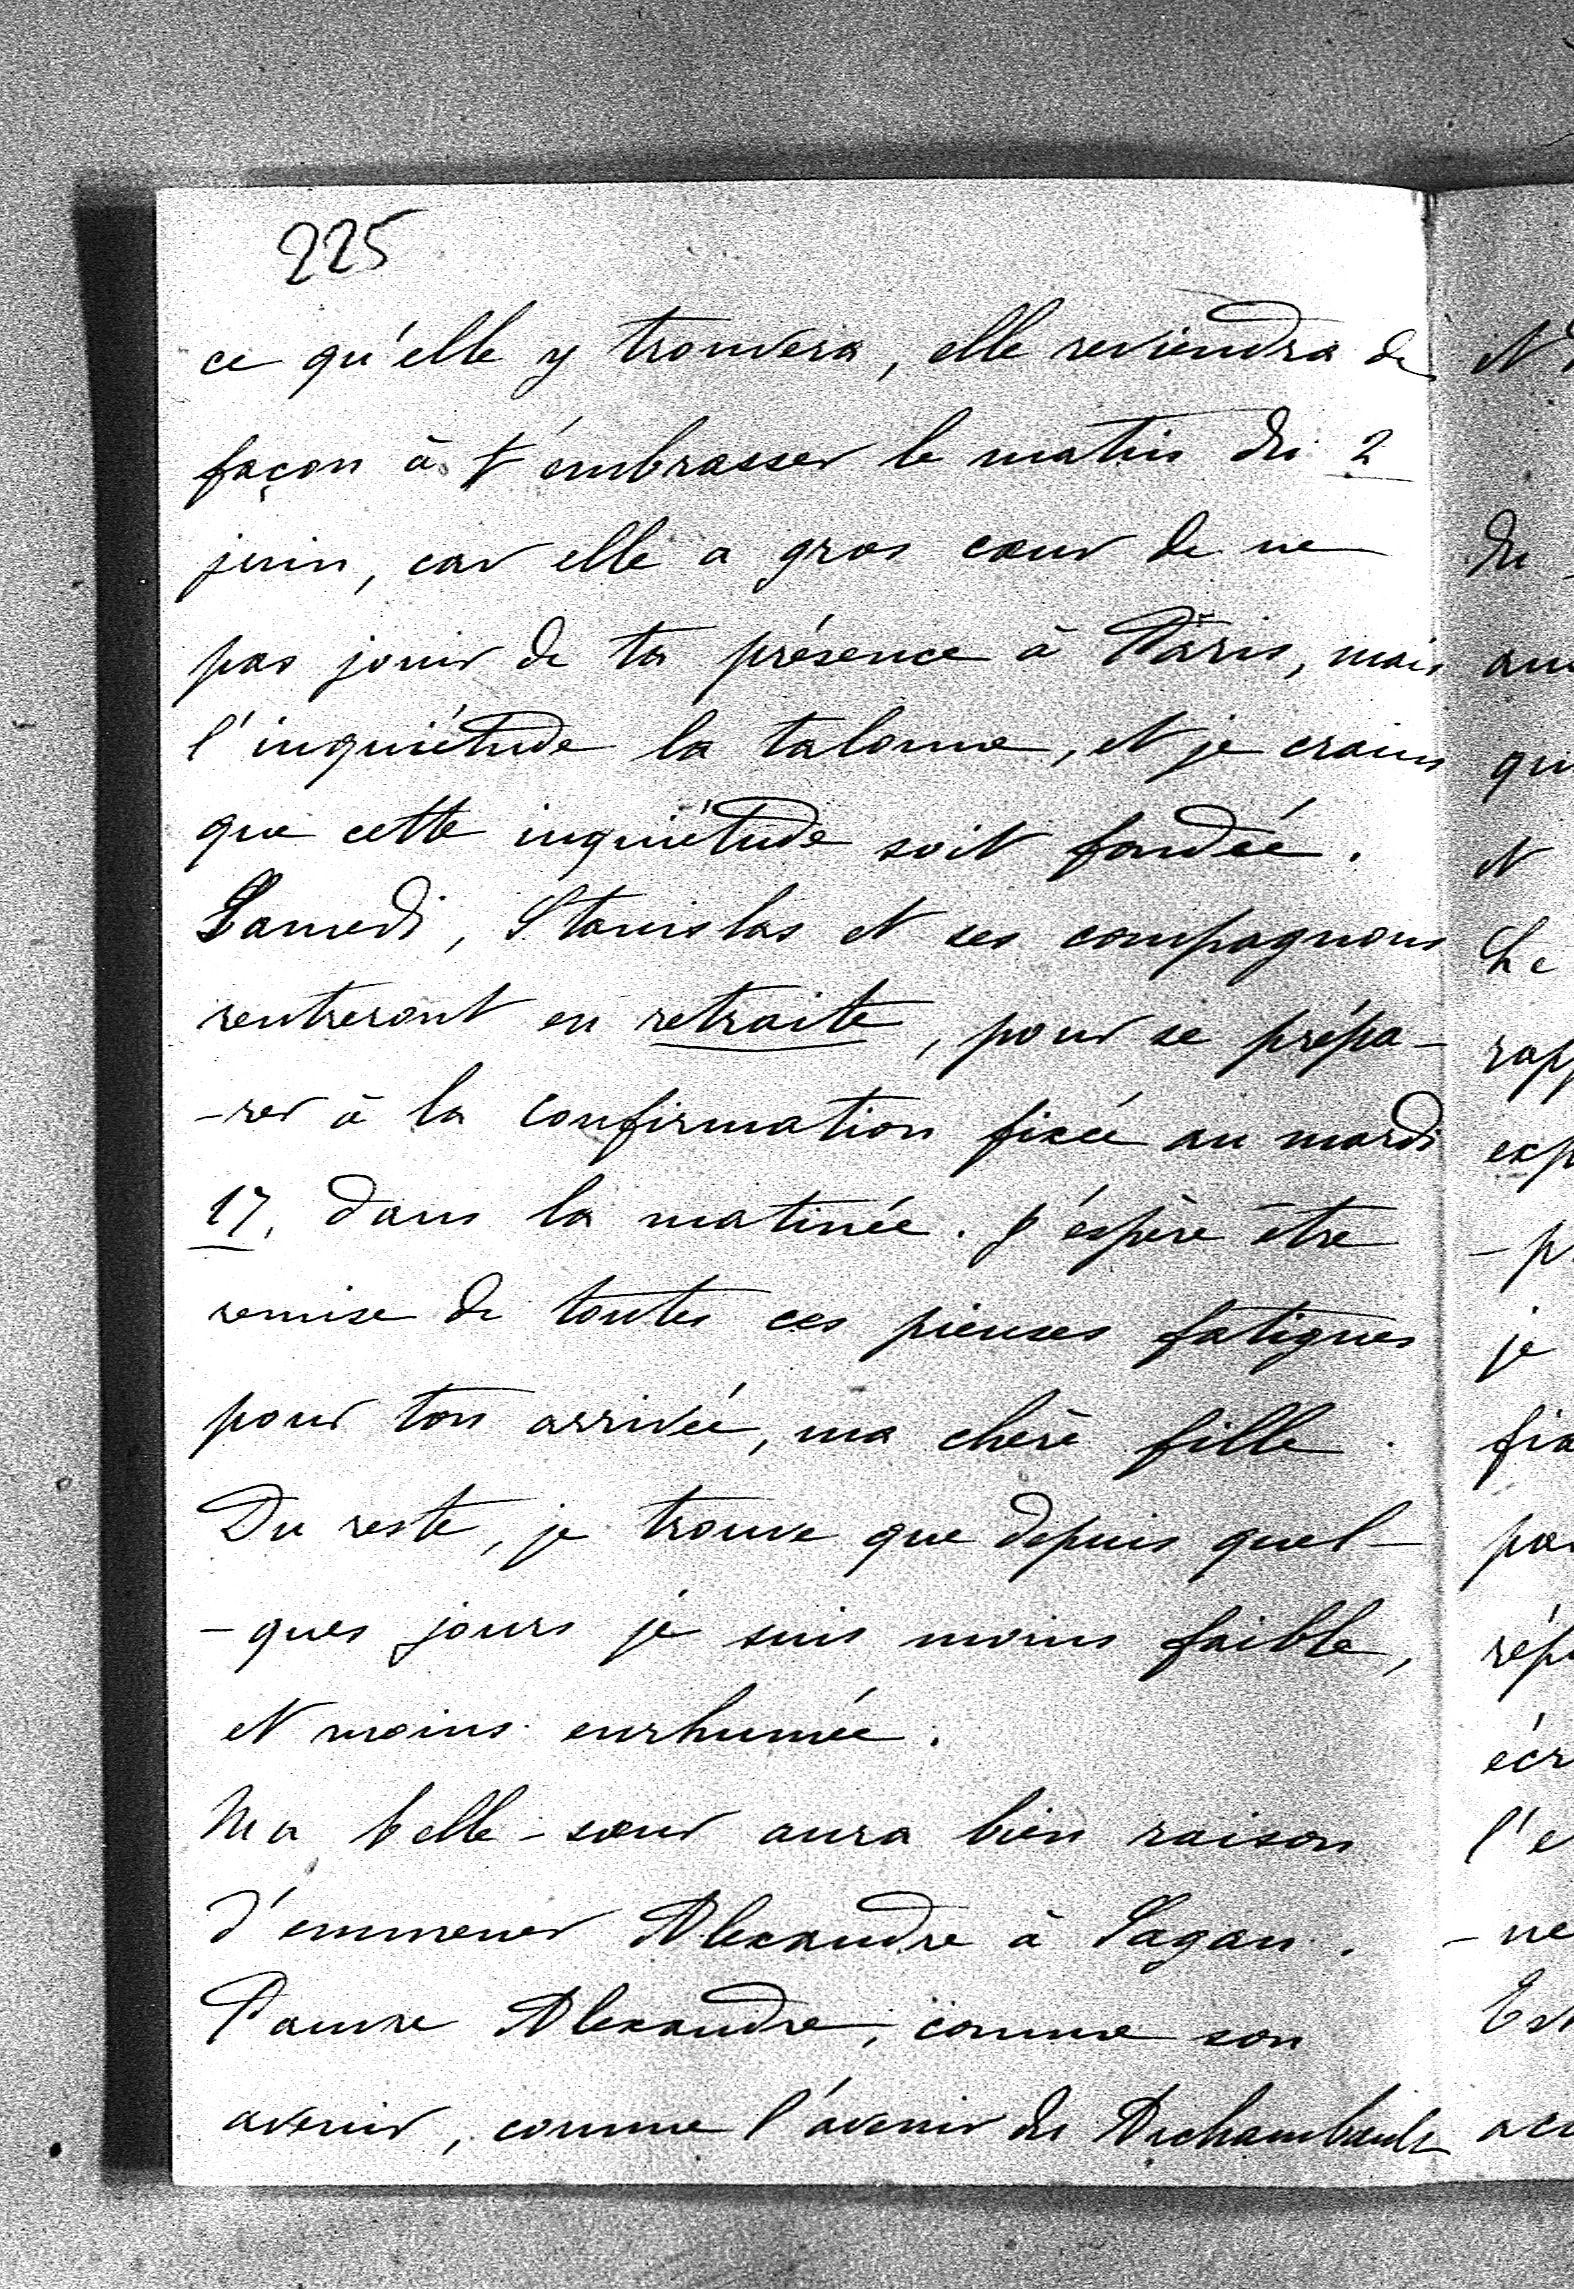 225
ce qu'elle y trouvera, elle reviendra de
façon à t'embrasser le matin du 2
juin, car elle a gros cœur de ne
pas jouir de ta présence à Paris, mais
l'inquiétude la talonne, et je crains
que cette inquiétude soit fondée.
Samedi, Stanislas et ses compagnons
rentreront en retraite, pour se prépa-
-rer à la confirmation fixée au mardi
17, dans la matinée. J'espère être
remise de toutes ces pieuses fatigues
pour ton arrivée, ma chère fille.
Du reste, je trouve que depuis quel-
-ques jours je suis moins faible,
et moins enrhumée.
Ma belle-sœur aura bien raison
d'emmener Alexandre à Sagan.
Pauvre Alexandre, comme son
avenir, comme l'avenir du Archambault